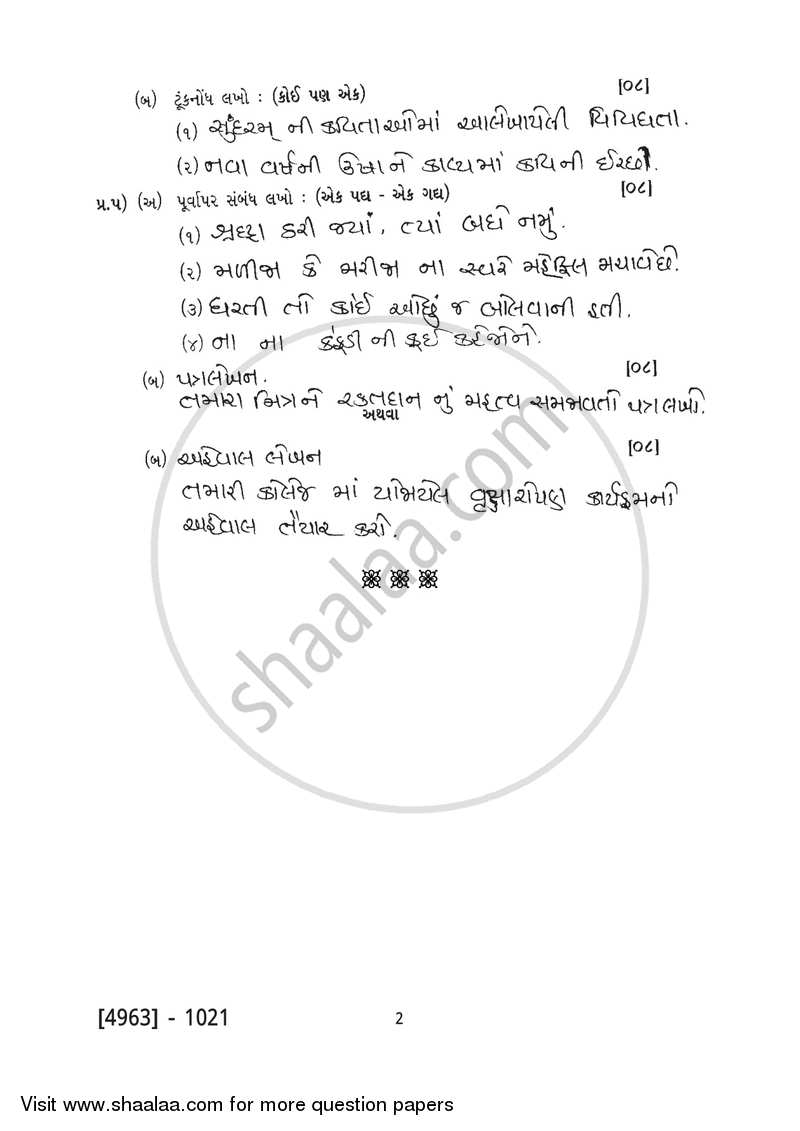 (બ) ટૂંકનોંધ લખો : (કોઈ પણ એક) [૦૮]
(૧) સુંદરમ્ ની કવિતાઓમાં આલેખાયેલી વિવિધતા.
(૨) નવા વર્ષની ઉષાને કાવ્યમાં કવિની ઈચ્છા.
પ્ર.૫) (અ) પૂર્વાપર સંબંધ લખો : (એક પદ્ય - એક ગદ્ય) [૦૮]
(૧) શ્રદ્ધા ઠરી જ્યાં, ત્યાં બધે નમું.
(૨) મળીજા કે મરીજા ના સ્વરે મહેફિલ મચાવેછે.
(૩) ધરતી તો કાંઈ ઓછું જ બોલવાની હતી.
(૪) ના ના ની ફઈ કહેજોને.
(બ) પત્રલેખન. [૦૮]
તમારા મિત્રને રક્તદાન નું મહત્વ સમજાવતો પત્ર લખો.
અથવા
(બ) અહેવાલ લેખન [૦૮]
તમારી કોલેજ માં યોજાયેલ વૃક્ષારોપણ કાર્યક્રમનો
અહેવાલ તૈયાર કરો.
shaalaa.com
[4963] - 1021 2
Visit www.shaalaa.com for more question papers